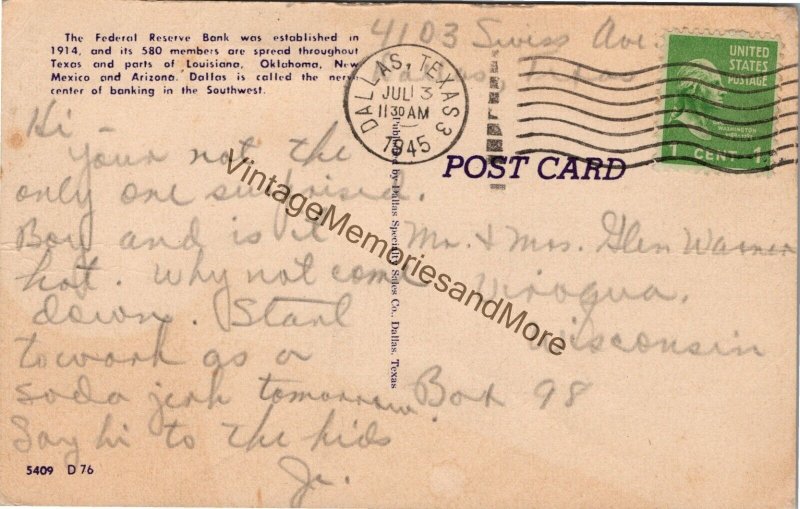 The Federal Reserve Bank was established in
1914, and its 580 members are spread throughout
Texas and parts of Louisiana, Oklahoma, New
Mexico and Arizona. Dallas is called the nerve
center of banking in the Southwest.
4103 Swiss Ave.
Dallas, Texas
DALLAS, TEXAS 3
JUL 3
11 30 AM
1945
UNITED
STATES
POSTAGE
WASHINGTON
1 CENT 1
POST CARD
Hi –
Your not the
only one surprised.
Boy and is it
hot. Why not come
down. Start
to work as a
soda jerk tomorrow
Say hi to the kids
Jr.
Published by Dallas Specialty Sales Co., Dallas, Texas
Mr. & Mrs. Glen Warner
Viroqua,
Wisconsin
Box 98
VintageMemoriesandMore
5409 D 76